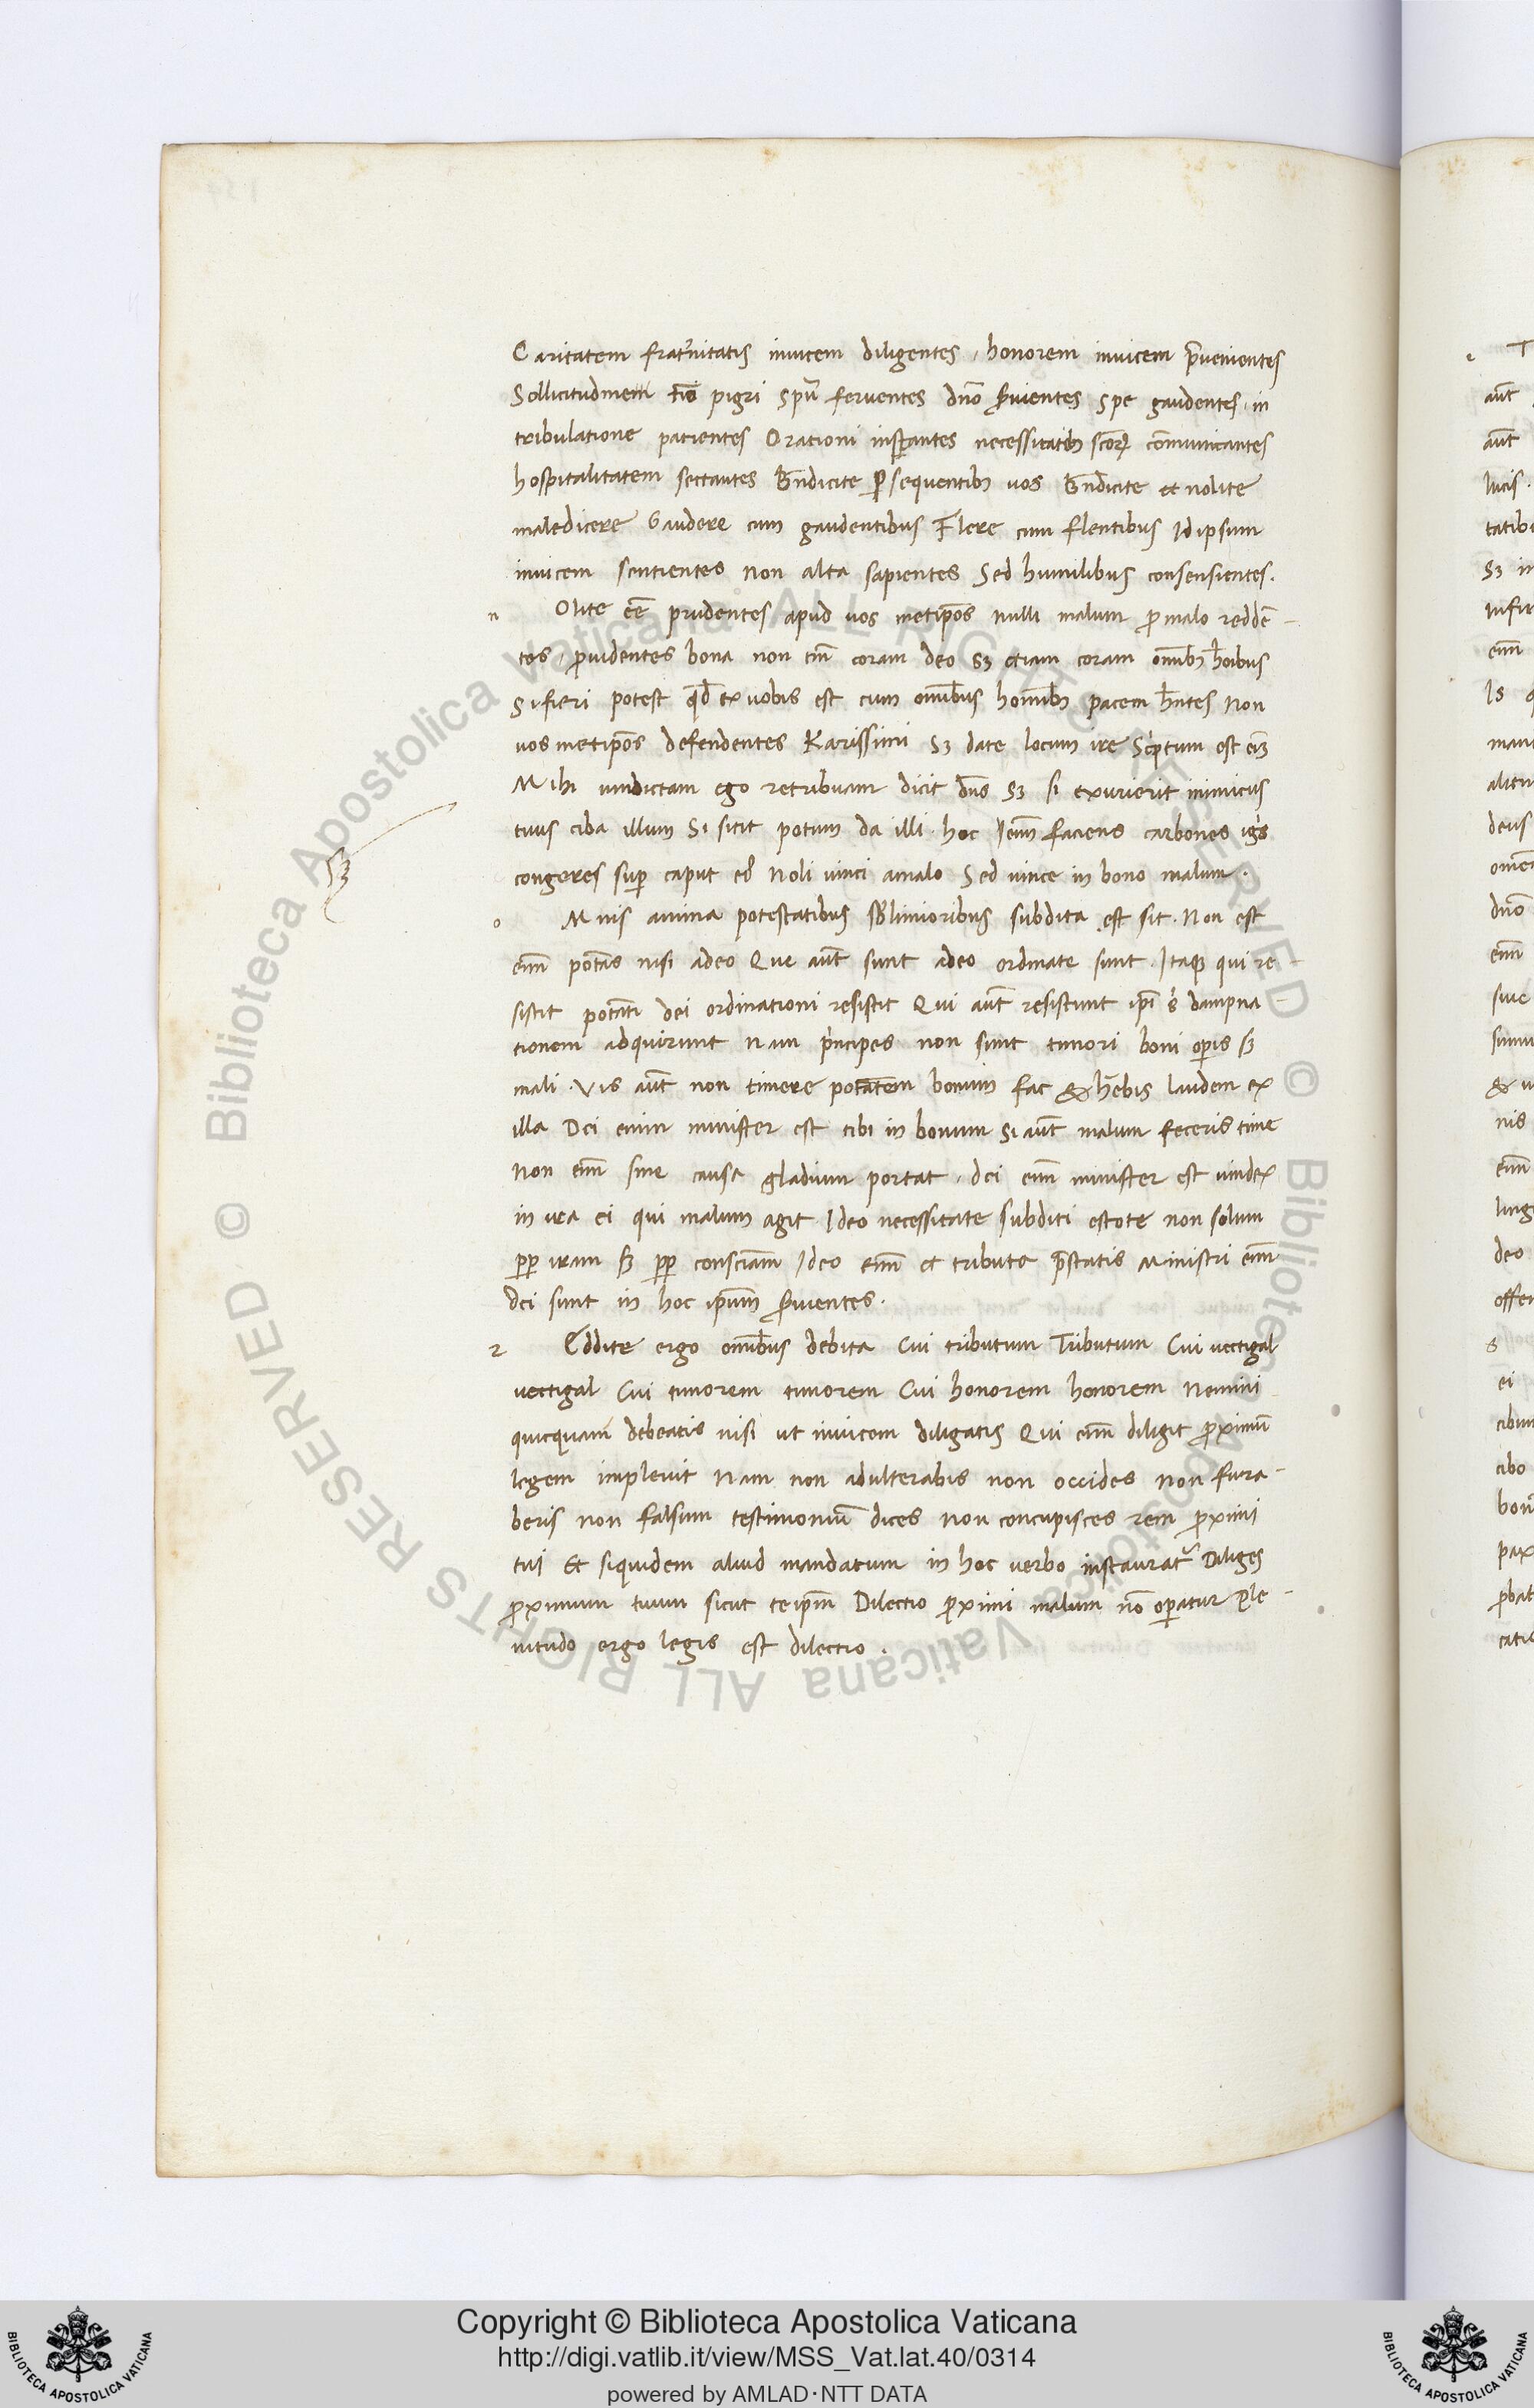 Caritatem frat̉nitatis inuicem diligentes, honorem inuicem p̄uenientes
Sollicitudinem nō pigri spū feruentes dnō ẜuientes spe gaudentes in
tribulatione patientes Orationi instantes necessitatibꝫ sc̄oꝝ com̄unicantes
hospitalitatem sectantes Bn̄dicite ꝑsequentibꝫ uos Bn̄dicite et nolite
maledicere Gaudere cum gaudentibus Flere cum flentibus Idipsum
inuicem sentientes Non alta sapientes Sed humilibus consensientes.
n Olite eē prudentes apud uos metip̄os nulli malum ꝓ malo reddē-
tes, ꝓuidentes bona non tm̄ coram deo sꝫ etiam coram om̄ibꝫ hoībus
Si fieri potest qd̄ ex uobis est cum om̄ibus hom̄ibꝫ pacem hn̄tes Non
uos metip̄os defendentes Karissimi Sꝫ date locum ire Scͥptum est eī
Mihi uindictam ego retribuam dicit dn̄s Sꝫ si exurierit inimicus
tuus ciba illum Si sitit potum da illi. hoc enī faciens carbones igͥs
congeres suꝑ caput eꝰ Noli uinci amalo Sed uince in bono malum.
o Mnis anima potestatibus sb̄limioribus subdita est sit. Non est
enī potās nisi adeo Que aūt sunt adeo ordinate sunt. Itaqꝫ qui re-
sistit potāti dei ordinationi resistit Qui aūt resistunt ip̄i sͥ dampna-
tionem adquirunt Nam pͥncipes non sunt timori boni oꝑis sꝫ
mali. Vis aūt non timere potātem bonum fac & hēbis laudem ex
illa Dei enim minister est tibi in bonum Si aūt malum feceris time
Non enī sine causa gladium portat. dei enī minister est uindex
in ira ei qui malum agit Ideo necessitate subditi estote non solum
ꝓp iram sꝫ ꝓp consciām Ideo enī et tributa p̄statis Ministri enī
dei sunt in hoc ip̄um ẜuientes.
r Eddite ergo om̄ibus debita Cui tributum Tributum Cui uectigal
uectigal Cui timorem timorem Cui honorem honorem Nemini
quicquam debeatis nisi ut inuicem diligatis Qui enī diligit ꝓximū
legem impleuit Nam non adulterabis non occides non fura-
beris non falsum testimoniū dices non concupisces rem ꝓximi
tui Et siquidem aliud mandatum in hoc uerbo instauratᷣ Diliges
ꝓximum tuum sicut teip̄m Dilectio ꝓximi malum nō oꝑatur Ple-
nitudo ergo legis est dilectio.
Copyright © Biblioteca Apostolica Vaticana
http://digi.vatlib.it/view/MSS_Vat.lat.40/0314
powered by AMLAD·NTT DATA